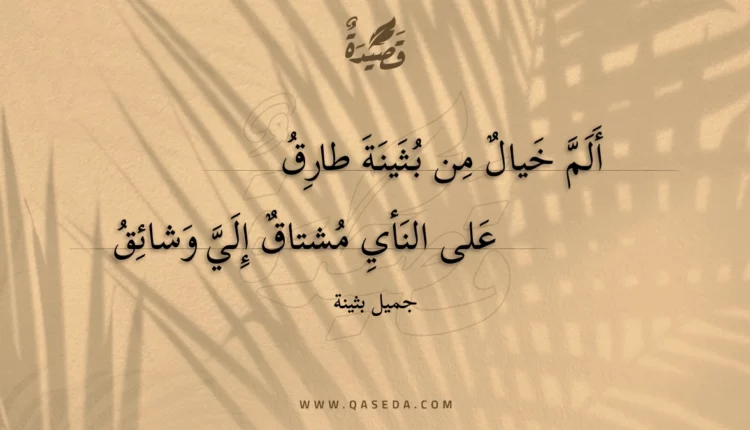 قَصِيدَةٌ
أَلَمَّ خَيالٌ مِن بُثَينَةَ طارِقُ
عَلى النَأيِ مُشتاقٌ إِلَيَّ وَشائِقُ
جميل بثينة
WWW.QASEDA.COM